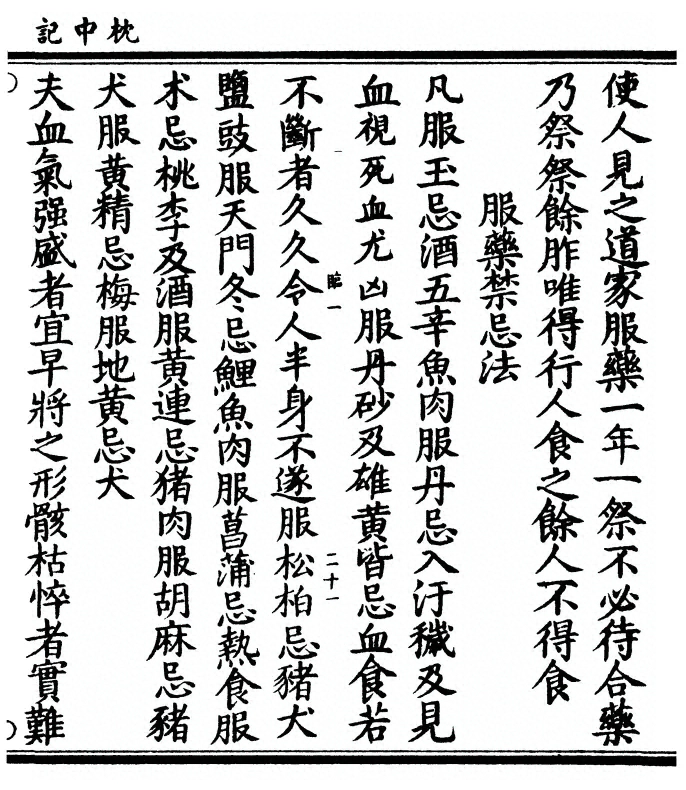 枕中記
使人見之道家服藥一年一祭不必待合藥
乃祭祭餘胙唯得行人食之餘人不得食
服藥禁忌法
凡服玉忌酒五辛魚肉服丹忌入汙穢及見
血視死血尤凶服丹砂及雄黃皆忌血食若
臨一
二十一
不斷者久久令人半身不遂服松柏忌豬犬
鹽豉服天門冬忌鯉魚肉服菖蒲忌熱食服
术忌桃李及酒服黃連忌猪肉服胡麻忌豬
犬服黃精忌梅服地黃忌犬
夫血氣强盛者宜早將之形骸枯悴者實難